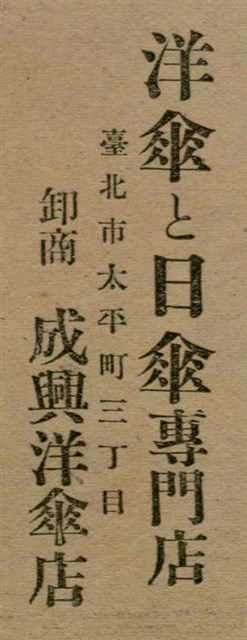 洋傘と日傘專門店
臺北市太平町三丁目
卸商 成興洋傘店